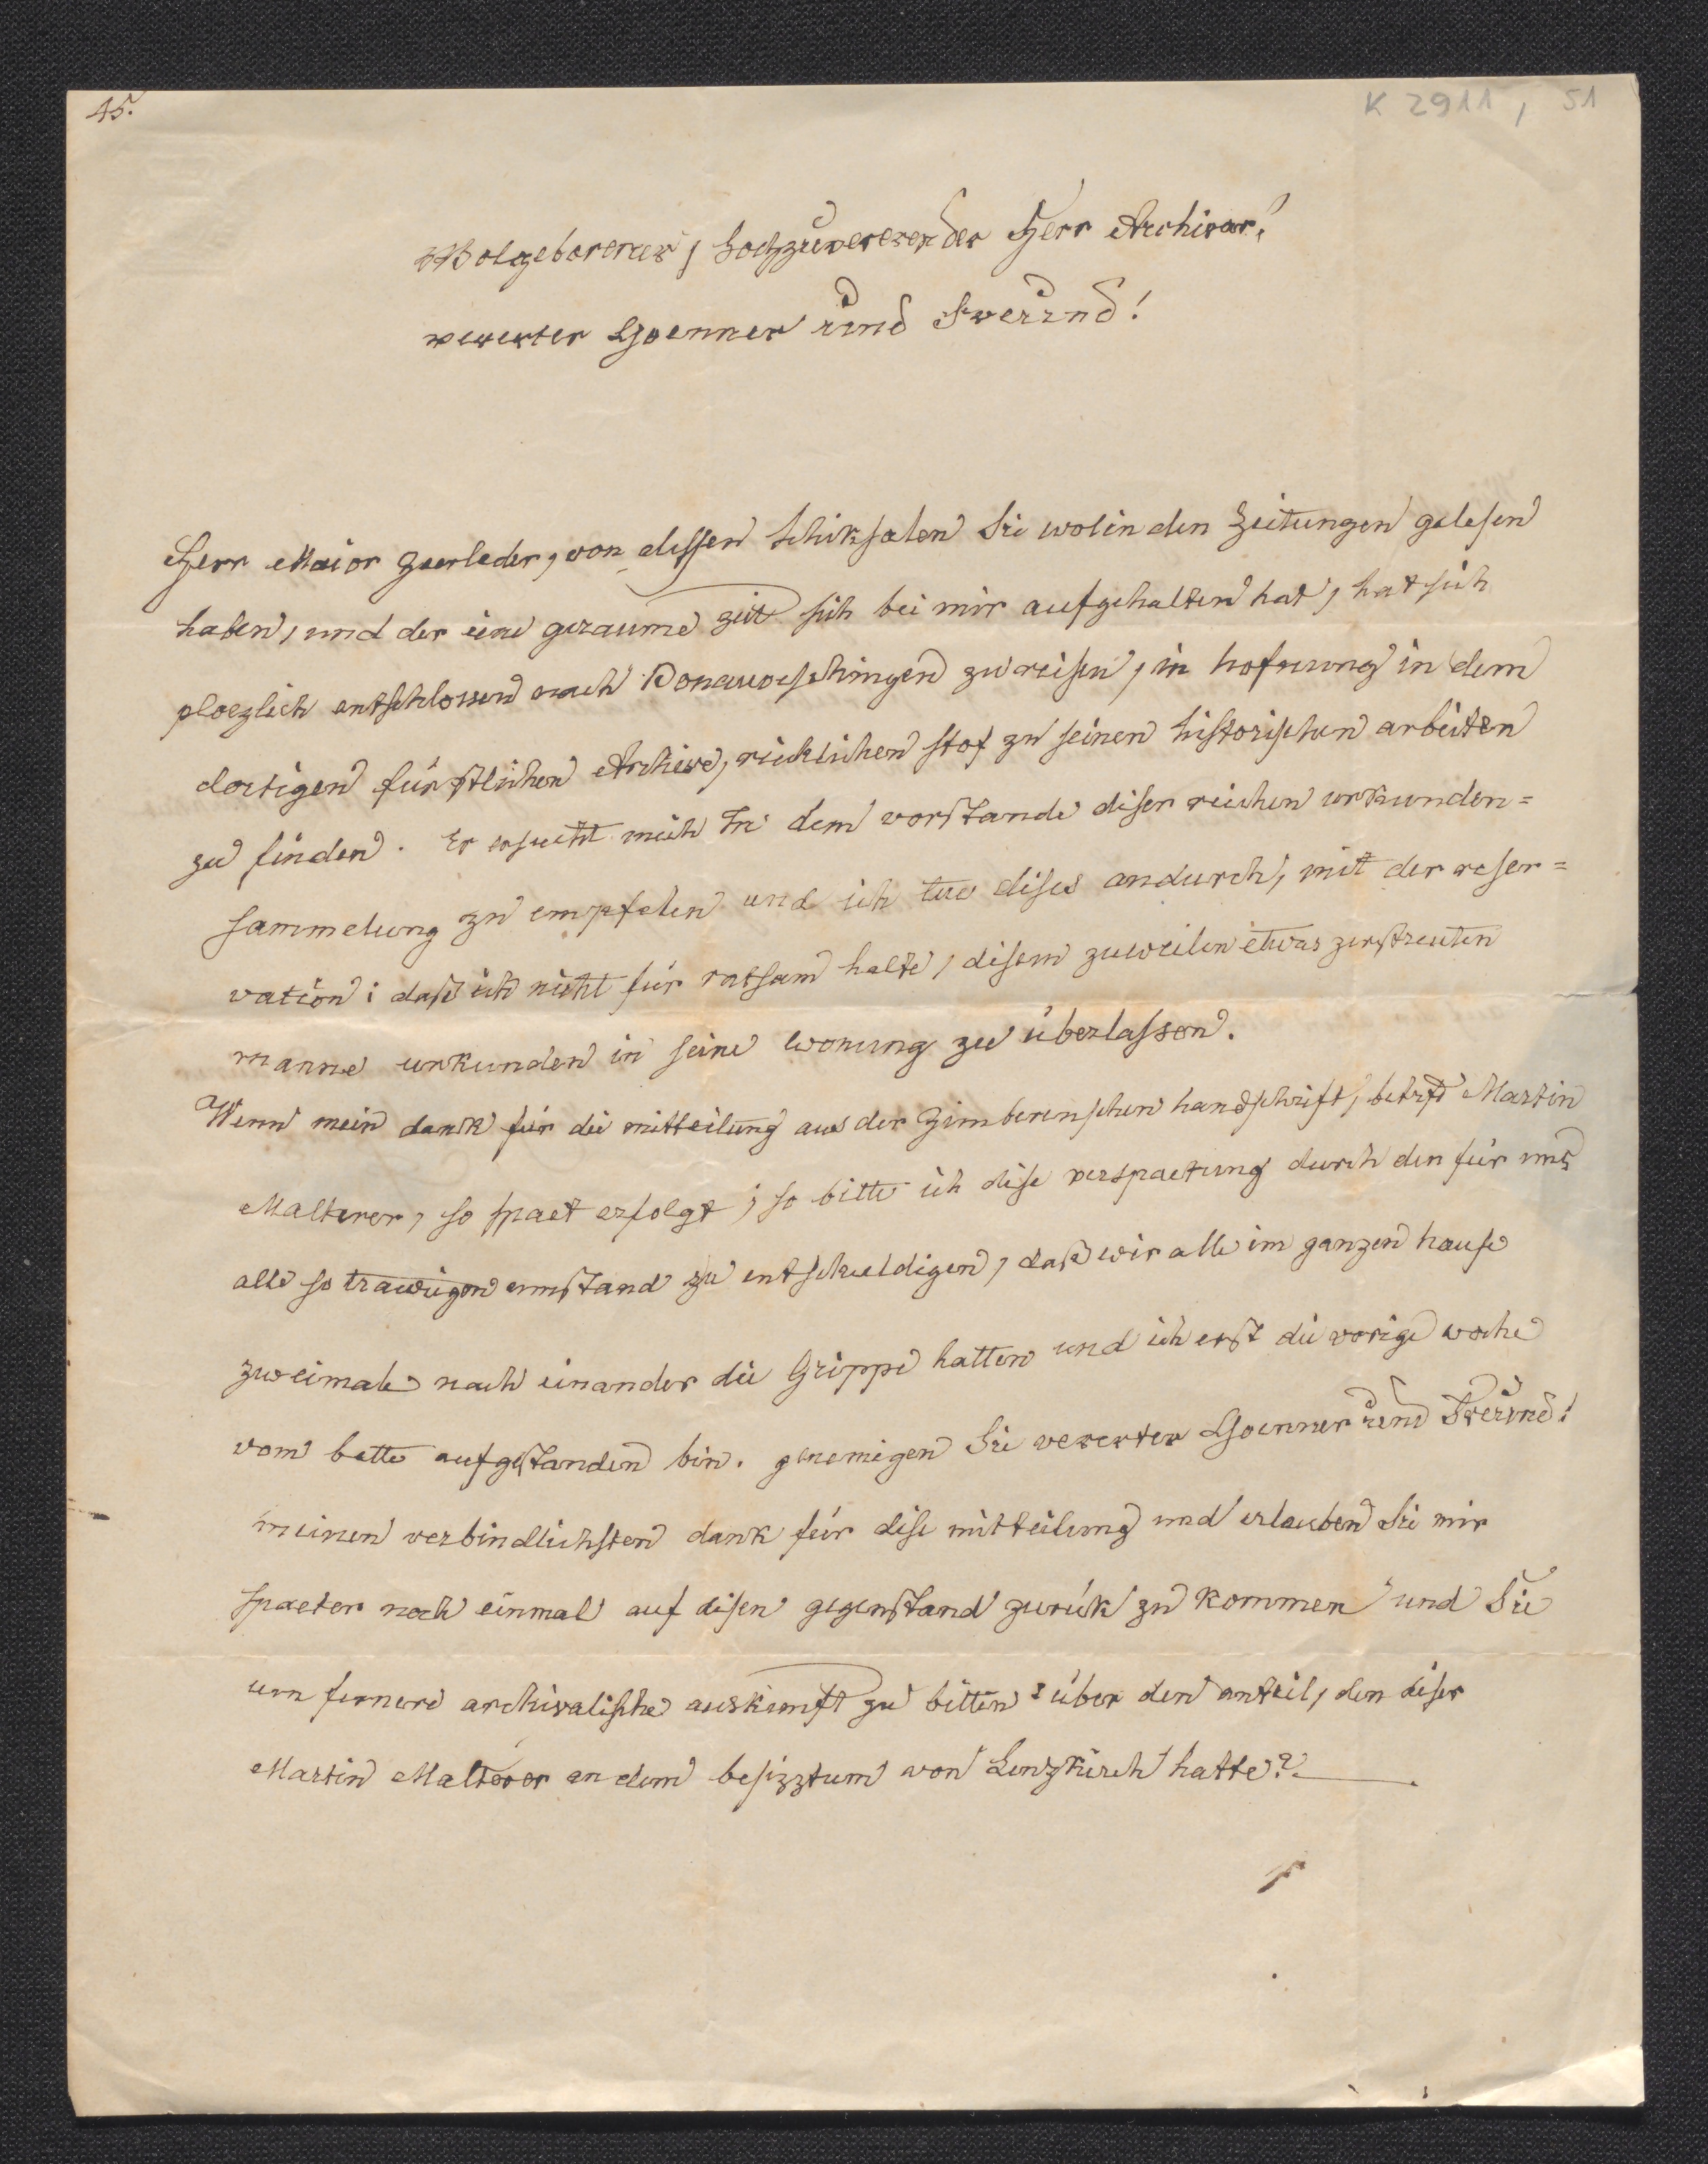 45.
K 2911, 51
Wolgeborener, hochzuvererender Herr Archivar!
vererter Goenner und Freund!
Herr Maior Zeerleder, von dessen schiksalen Sie wol in den Zeitungen gelesen
haben, und der eine geraume zeit sich bei mir aufgehalten hat, hat sich
ploezlich entschlossen nach Donaueschingen zu reisen, in hofnung in dem
dortigen fürstlichen Archive, reichlichen stof zu seinen historischen arbeiten
zu finden. Er ersucht mich In dem vorstande diser reichen urkunden=
sammelung zu empfelen und ich tue dises andurch, mit der reser=
vation: daß ich nicht für ratsam halte, disem zuweilen etwas zerstreuten
manne urkunden in seine wonung zu überlassen.
Wenn mein dank für die mitteilung aus der Zimberenschen handschrift, betrfd Martin
Malterer, so spaet erfolgt; so bitte ich dise verspaetung durch den für uns
alle so traurigen umstand zu entschuldigen, daß wir alle im ganzen hause
zweimale nach einander die Grippe hatten und ich erst die vorige woche
vom bette aufgestanden bin. genemigen Sie vererter Goenner und Freund!
meinen verbindlichsten dank für dise mitteilung und erlauben Sie mir
spaeter noch einmal auf disen gegenstand zurük zu kommen und Sie
um fernere archivalische auskunft zu bitten: über den anteil, den diser
Martin Malterer an dem besizztum von Lenzkirch hatte?